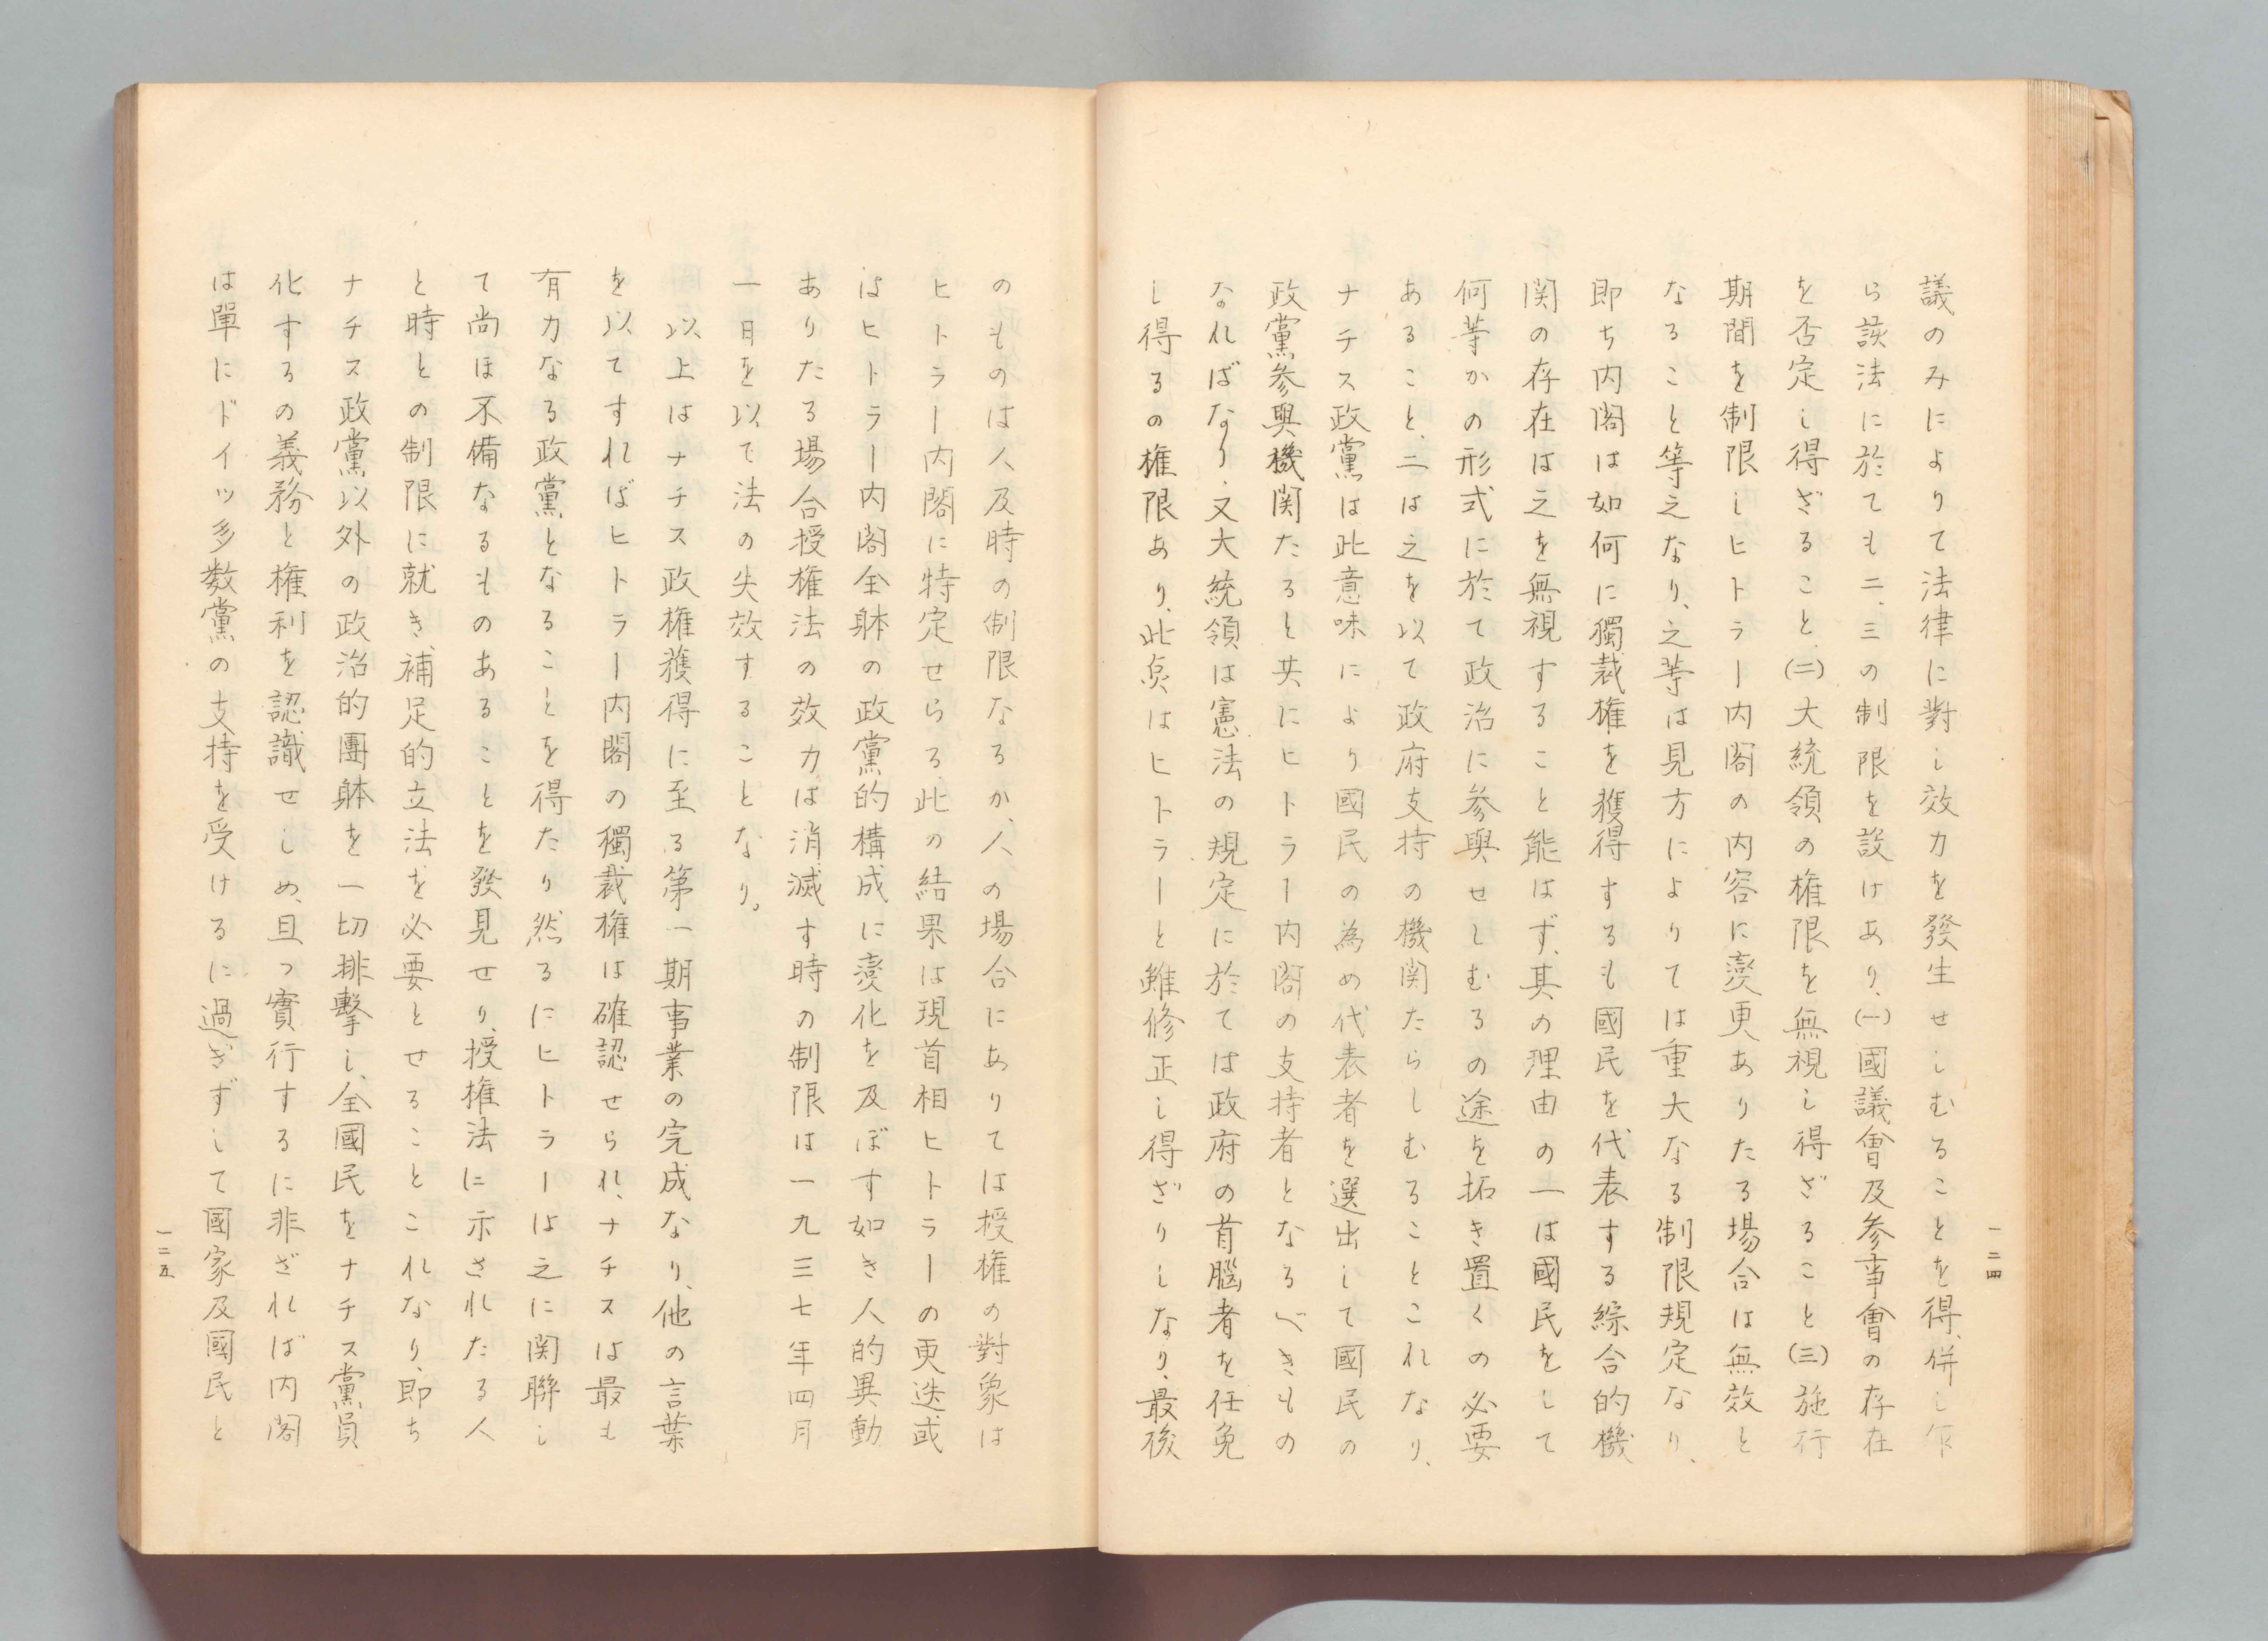 一二四
議のみによりて法律に對し效力を發生せしむることを得、併し乍
ら該法に於ても二、三の制限を設けあり、(一)國議會及参事會の存在
を否定し得ざること、(二)大統領の権限を無視し得ざること(三)施行
期間を制限しヒトラー内閣の内容に變更ありたる場合は無效と
なること等之なり、之等は見方によりては重大なる制限規定なり、
即ち内閣は如何に獨裁権を獲得するも國民を代表する綜合的機
関の存在は之を無視すること能はず、其の理由の一は國民をして
何等かの形式に於て政治に参與せしむるの途を拓き置くの必要
あること、二は之を以て政府支持の機関たらしむることこれなり、
ナチス政黨は此意味により國民の為め代表者を選出して國民の
政黨参與機関たると共にヒトラー内閣の支持者となるべきもの
なればなり、又大統領は憲法の規定に於ては政府の首腦者を任免
し得るの権限あり、此点はヒトラーと雖修正し得ざりしなり、最後
のものは人及時の制限なるか、人の場合にありては授権の對象は
ヒトラー内閣に特定せらる、此の結果は現首相ヒトラーの更迭或
はヒトラー内閣全躰の政黨的構成に變化を及ぼす如き人的異動
ありたる場合授権法の效力は消滅す時の制限は一九三七年四月
一日を以て法の失效することなり。
以上はナチス政権獲得に至る第一期事業の完成なり、他の言葉
を以てすればヒトラー内閣の獨裁権は確認せられ、ナチスは最も
有力なる政黨となることを得たり然るにヒトラーは之に関聯し
て尚ほ不備なるものあることを發見せり、授権法に示されたる人
と時との制限に就き補足的立法を必要とせることこれなり、即ち
ナチス政黨以外の政治的團躰を一切排擊し、全國民をナチス黨員
化するの義務と権利を認識せしめ、且つ實行するに非ざれば内閣
は單にドイツ多数黨の支持を受けるに過ぎずして國家及國民と
一二五